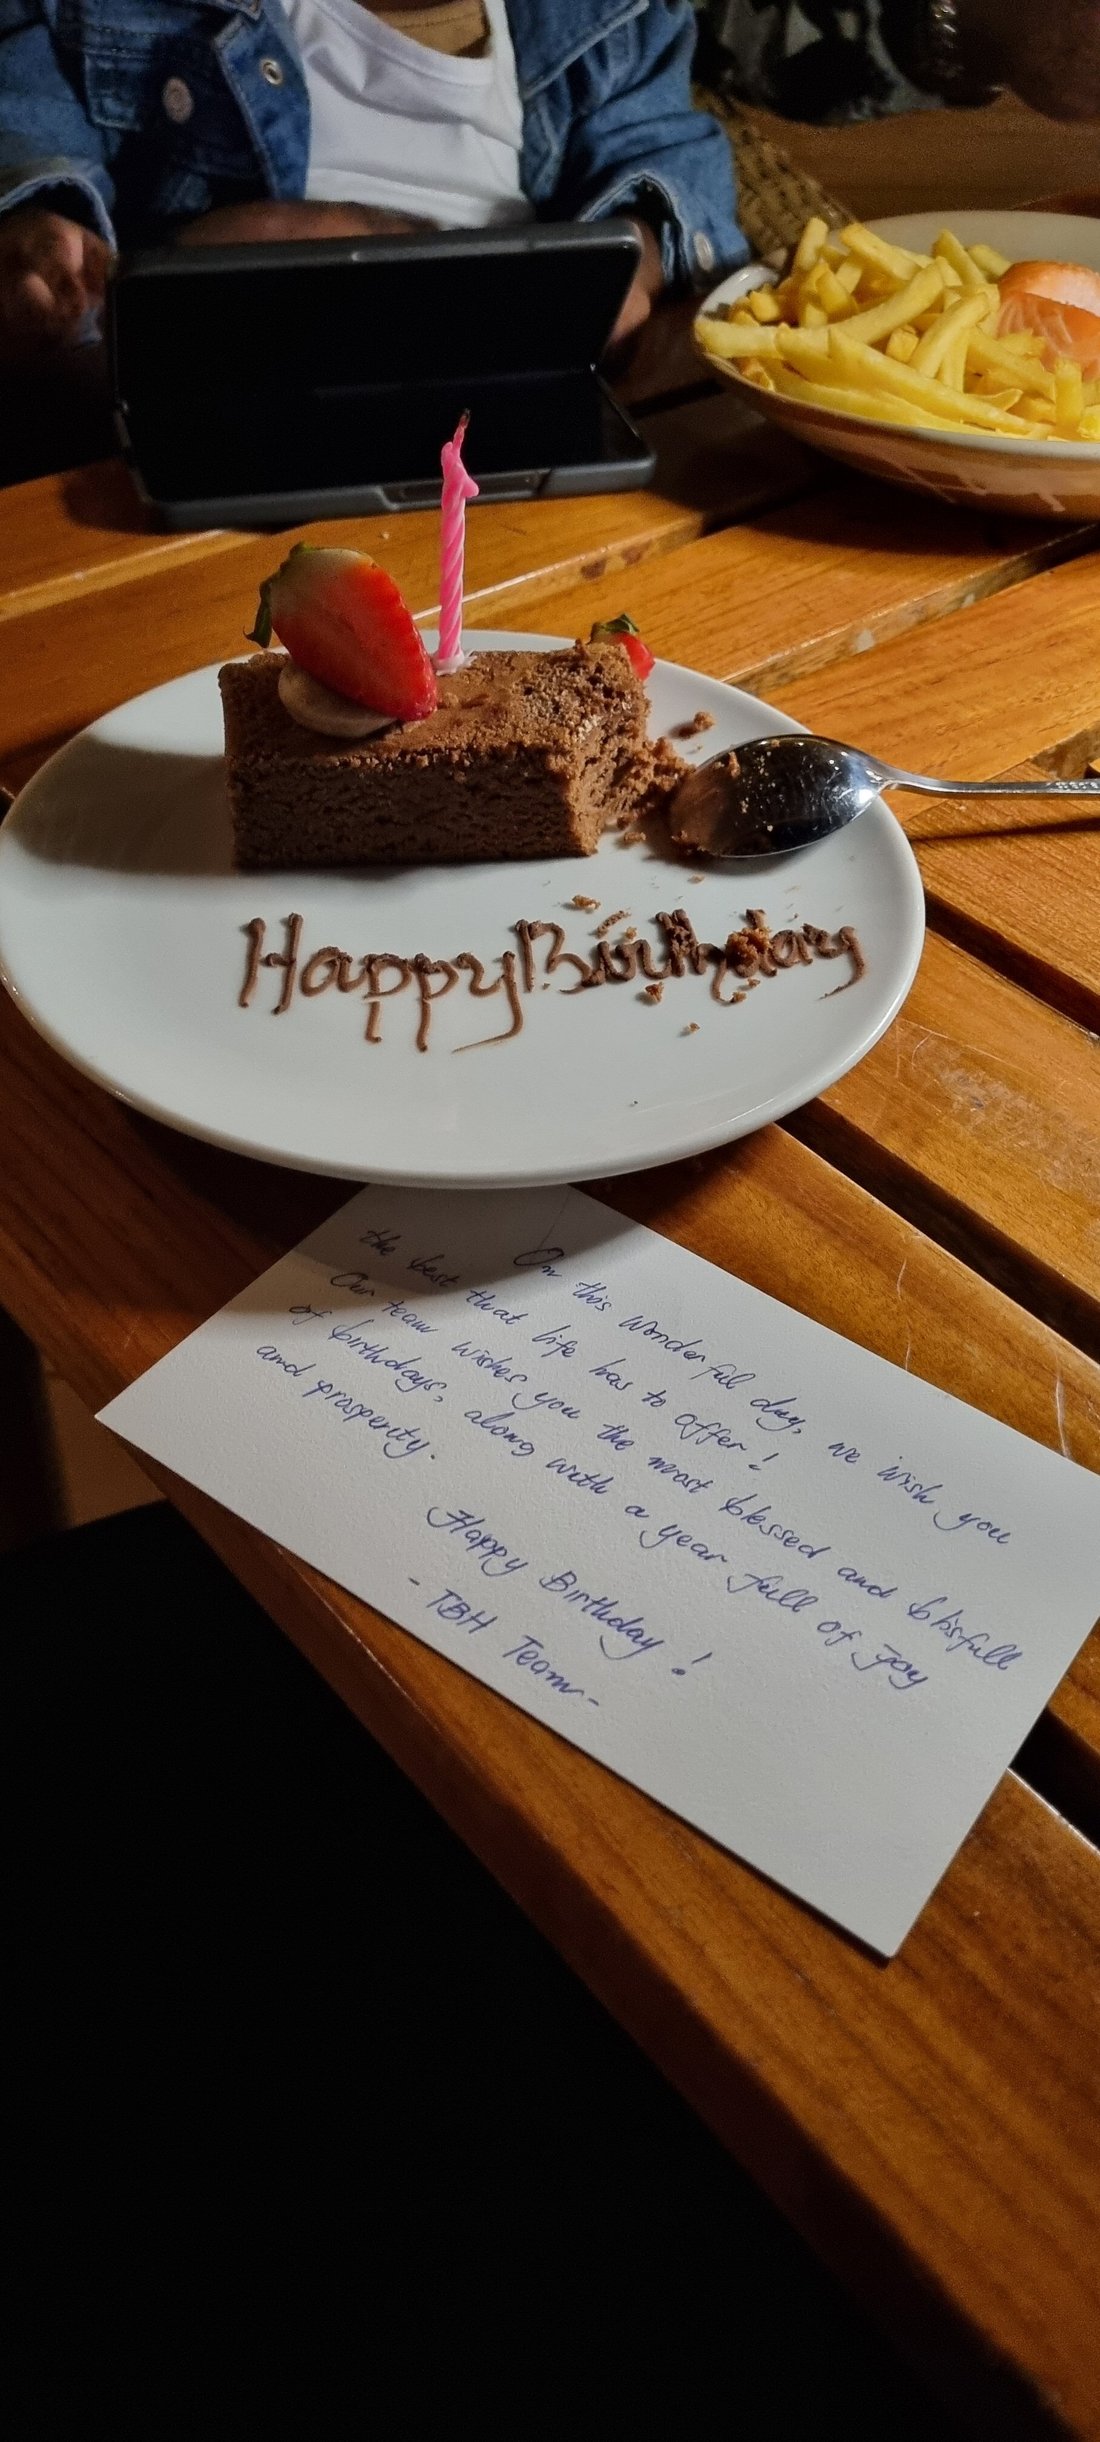 HappyBirthday
On this wonderful day, we wish you
the best that life has to offer!
Our team wishes you the most blessed and blissfull
of birthdays, along with a year full of joy
and prosperity.
Happy Birthday!
- TBH Team -